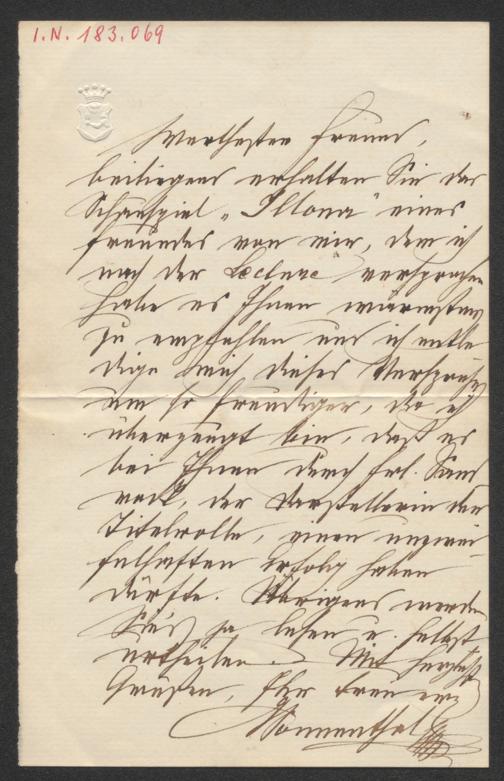 I.N. 183.069
Werthester Freund,
beiliegend erhalten Sie das
Schauspiel „Illona" eines
Freundes von mir, dem ich
nach der Lecture versprochen
habe es Ihnen wärmstens
zu empfehlen und ich entle
dige mich dieses Versprechens
um so freudiger, da ich
überzeugt bin, daß es
bei Ihnen durch Frl. Sand
rock, der Darstellerin der
Titelrolle, einen unzwei
felhaften Erfolg haben
dürfte. Übrigens werden
Sie's ja lesen u. selbst
urtheilen. Mit herzlichst
Grüßen, Ihr treu erg
Sonnenthal